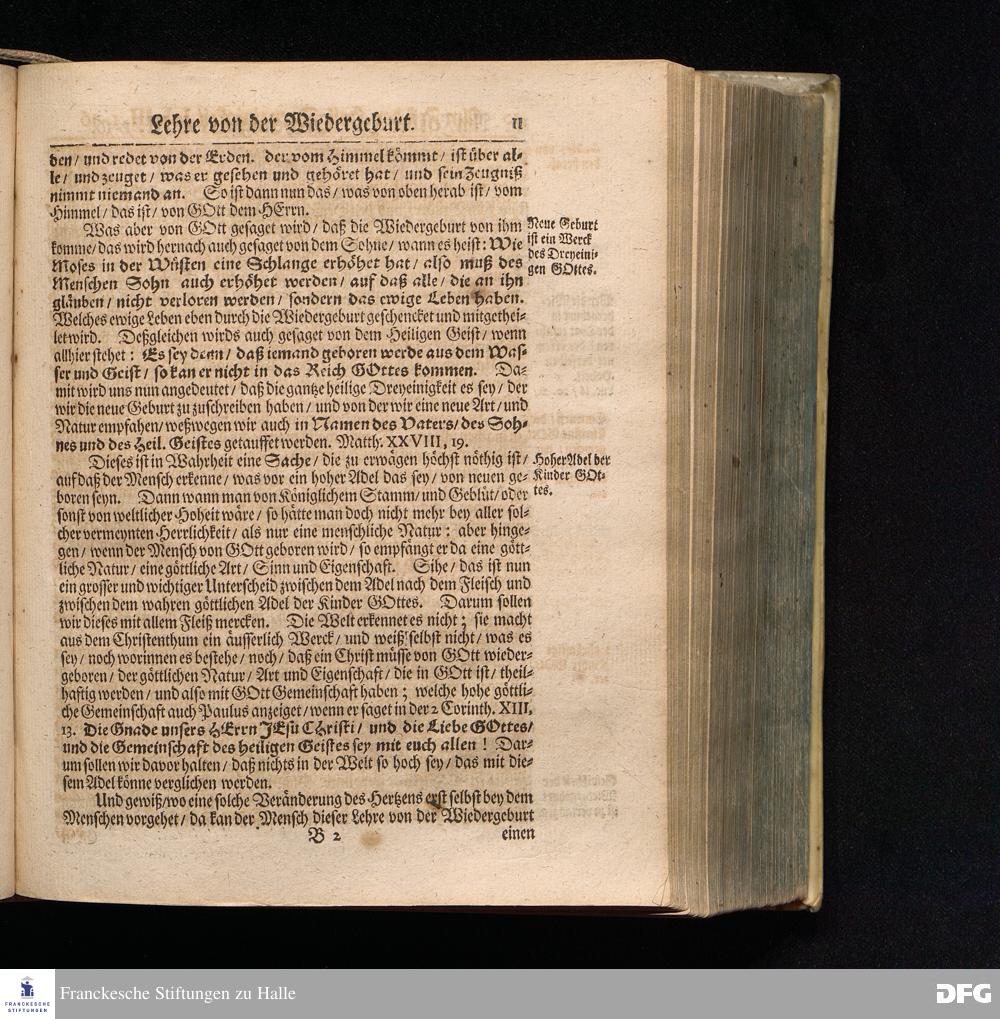 Lehre von der Wiedergeburt. 11
den/ und redet von der Erden. der vom Himmel kömmt/ ist über al-
le/ und zeuget/ was er gesehen und gehöret hat/ und sein Zeugniß
nimmt niemand an. So ist dann nun das/ was von oben herab ist/ vom
Himmel/ das ist/ von GOtt dem HErrn.
Was aber von GOtt gesaget wird/ daß die Wiedergeburt von ihm
komme/ das wird hernach auch gesaget von dem Sohne/ wann es heist: Wie
Moses in der Wüsten eine Schlange erhöhet hat/ also muß des
Menschen Sohn auch erhöhet werden/ auf daß alle/ die an ihn
gläuben/ nicht verloren werden/ sondern das ewige Leben haben.
Welches ewige Leben eben durch die Wiedergeburt geschencket und mitgethei-
let wird. Deßgleichen wirds auch gesaget von dem Heiligen Geist/ wenn
allhier stehet: Es sey denn/ daß iemand geboren werde aus dem Was-
ser und Geist/ so kan er nicht in das Reich GOttes kommen. Da-
mit wird uns nun angedeutet/ daß die gantze heilige Dreyeinigkeit es sey/ der
wir die neue Geburt zu zuschreiben haben/ und von der wir eine neue Art/ und
Natur empfahen/ weßwegen wir auch in Namen des Vaters/ des Soh-
nes und des Heil. Geistes getauffet werden. Matth. XXVIII, 19.
Neue Geburt
ist ein Werck
des Dreyeini-
gen GOttes.
Dieses ist in Wahrheit eine Sache/ die zu erwägen höchst nöthig ist/
auf daß der Mensch erkenne/ was vor ein hoher Adel das sey/ von neuen ge-
boren seyn. Dann wann man von Königlichem Stamm/ und Geblüt/ oder
sonst von weltlicher Hoheit wäre/ so hätte man doch nicht mehr bey aller sol-
cher vermeynten Herrlichkeit/ als nur eine menschliche Natur: aber hinge-
gen/ wenn der Mensch von GOtt geboren wird/ so empfängt er da eine gött-
liche Natur/ eine göttliche Art/ Sinn und Eigenschaft. Sihe/ das ist nun
ein grosser und wichtiger Unterscheid zwischen dem Adel nach dem Fleisch und
zwischen dem wahren göttlichen Adel der Kinder GOttes. Darum sollen
wir dieses mit allem Fleiß mercken. Die Welt erkennet es nicht; sie macht
aus dem Christenthum ein äusserlich Werck/ und weiß selbst nicht/ was es
sey/ noch worinnen es bestehe/ noch/ daß ein Christ müsse von GOtt wieder-
geboren/ der göttlichen Natur/ Art und Eigenschaft/ die in GOtt ist/ theil-
haftig werden/ und also mit GOtt Gemeinschaft haben; welche hohe göttli-
che Gemeinschaft auch Paulus anzeiget/ wenn er saget in der 2 Corinth. XIII,
13. Die Gnade unsers HErrn JEsu CHristi/ und die Liebe GOttes/
und die Gemeinschaft des heiligen Geistes sey mit euch allen! Dar-
um sollen wir davor halten/ daß nichts in der Welt so hoch sey/ das mit die-
sem Adel könne verglichen werden.
Hoher Adel der
Kinder GOt-
tes.
Und gewiß/ wo eine solche Veränderung des Hertzens erst selbst bey dem
Menschen vorgehet/ da kan der Mensch dieser Lehre von der Wiedergeburt
B 2 einen
FRANCKESCHE
STIFTUNGEN
Franckesche Stiftungen zu Halle
DFG